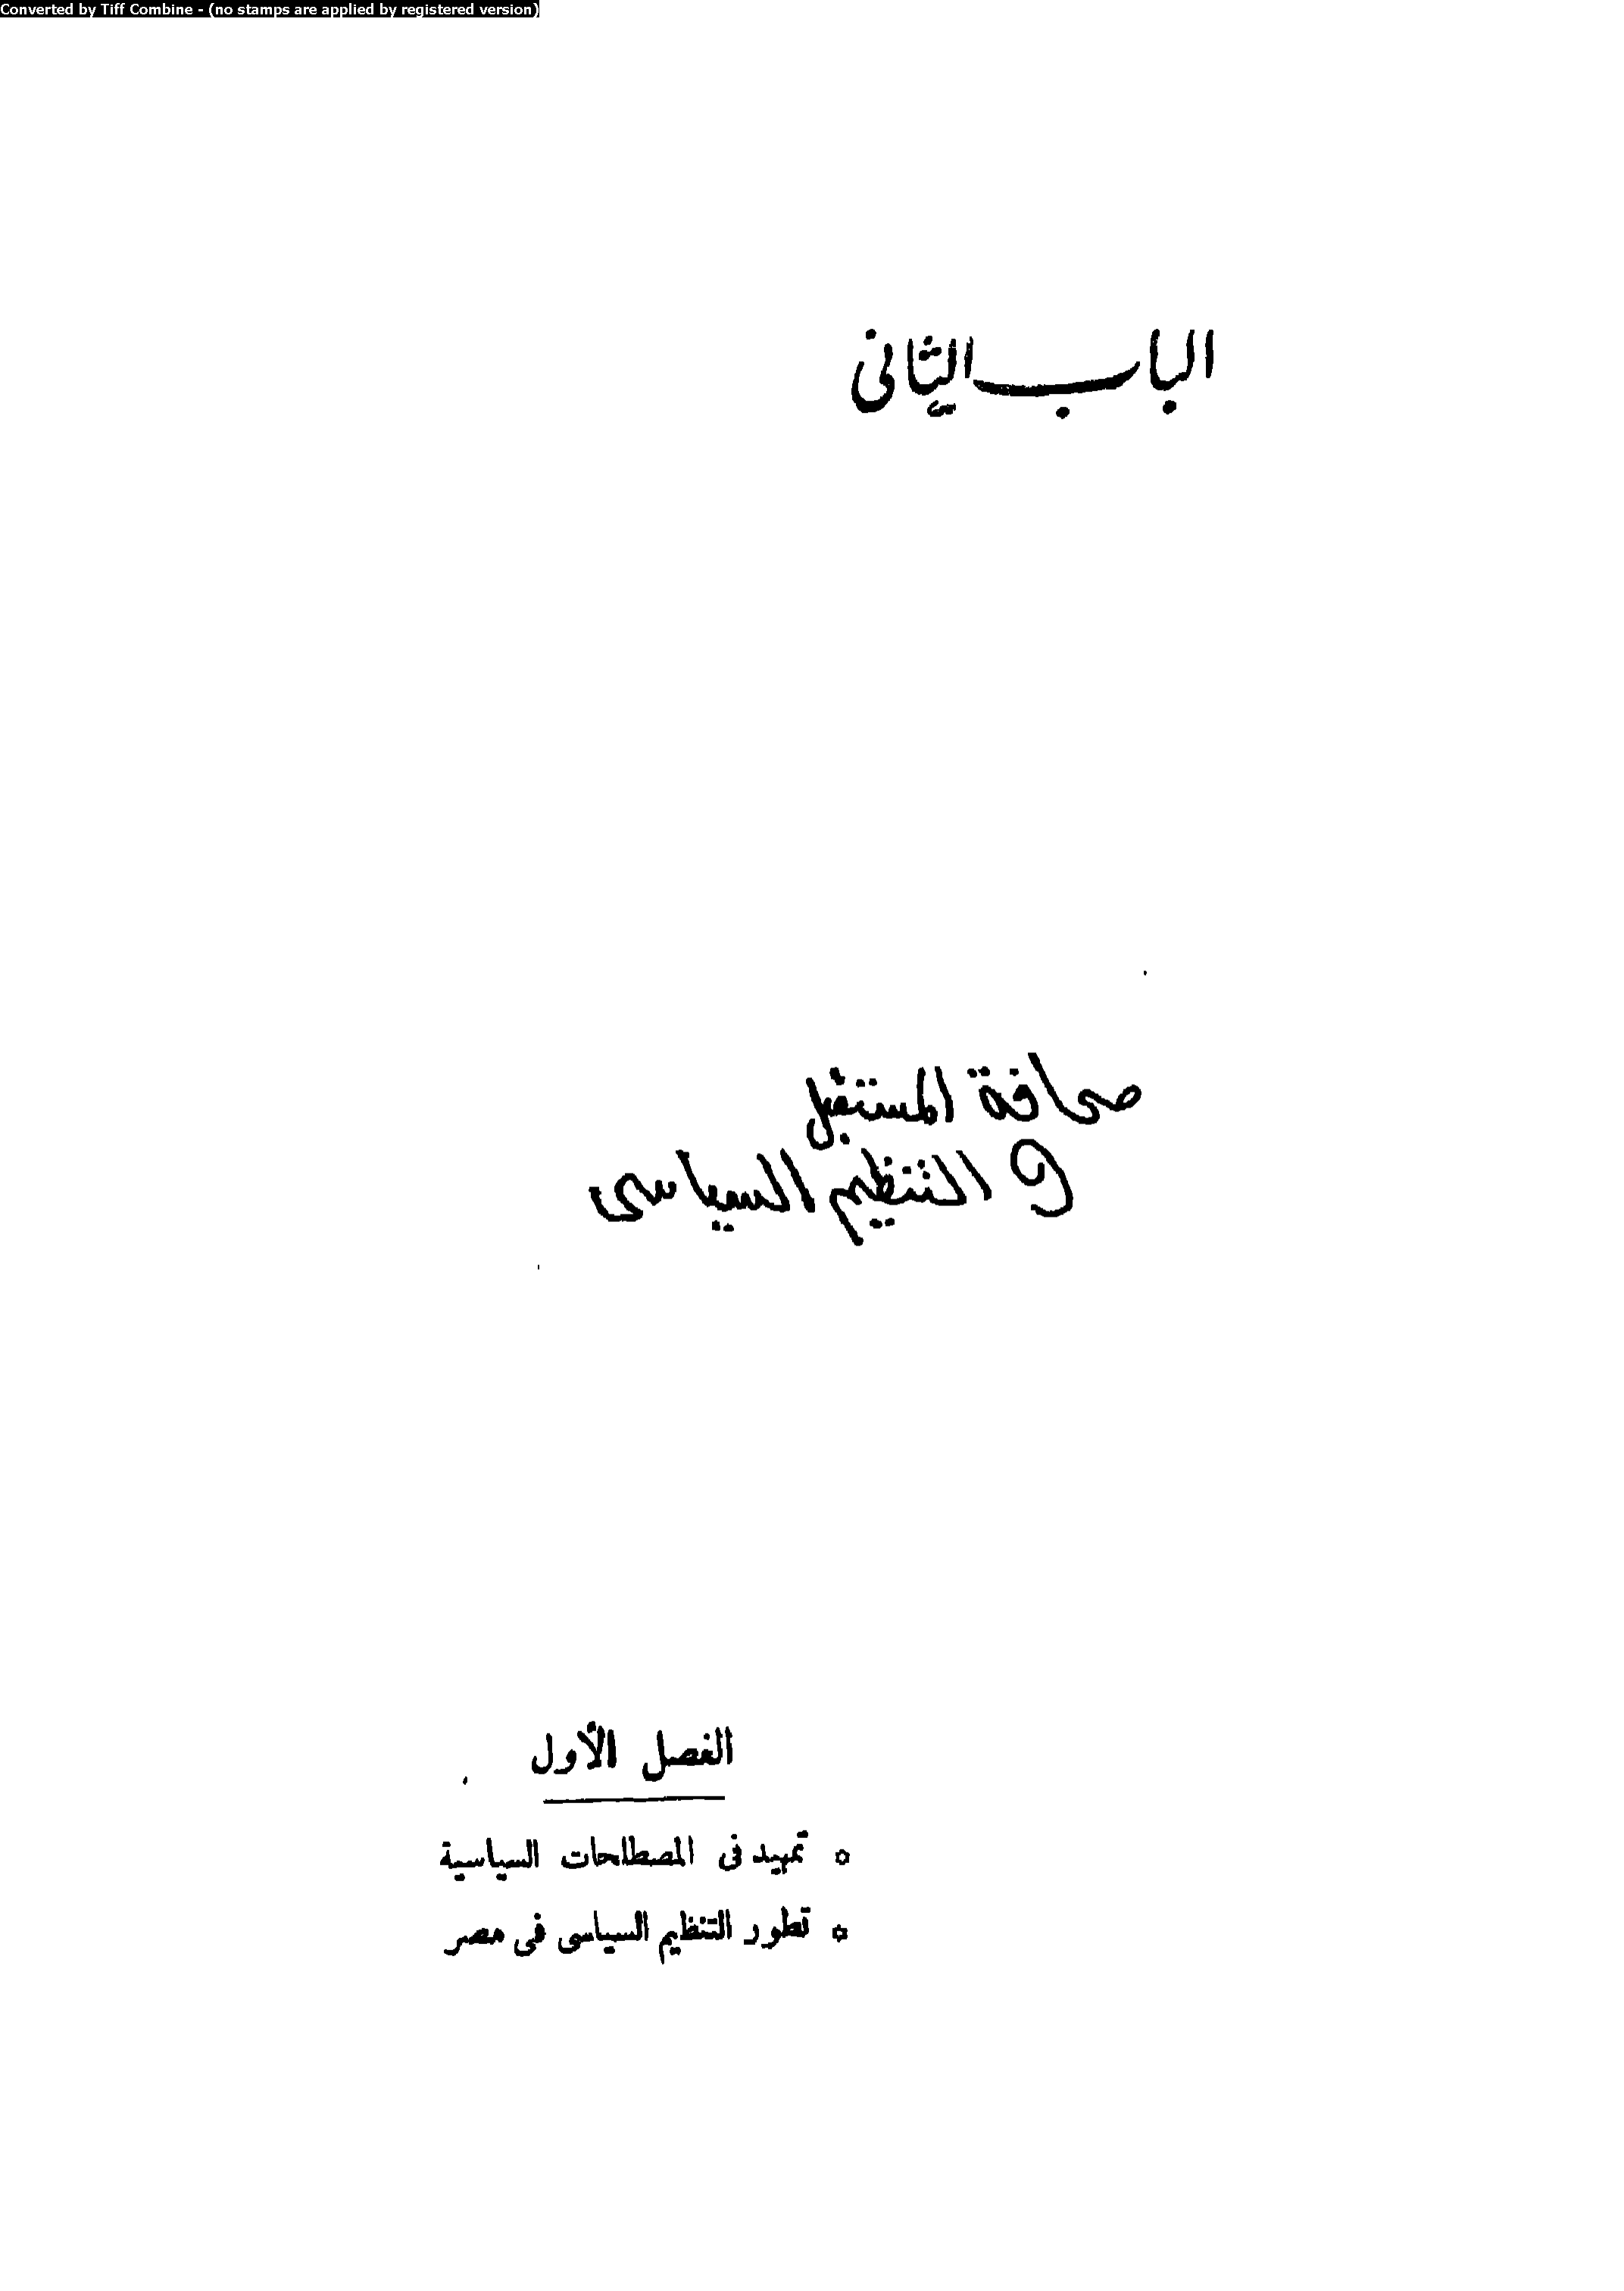 Converted by Tiff Combine - (no stamps are applied by registered version)
الباب الثانى
صحافة المستقبل
و التنظيم السياسى
الفصل الأول
✡ تمهيد فى المصطلحات السياسية
✡ تطور التنظيم السياسى فى مصر